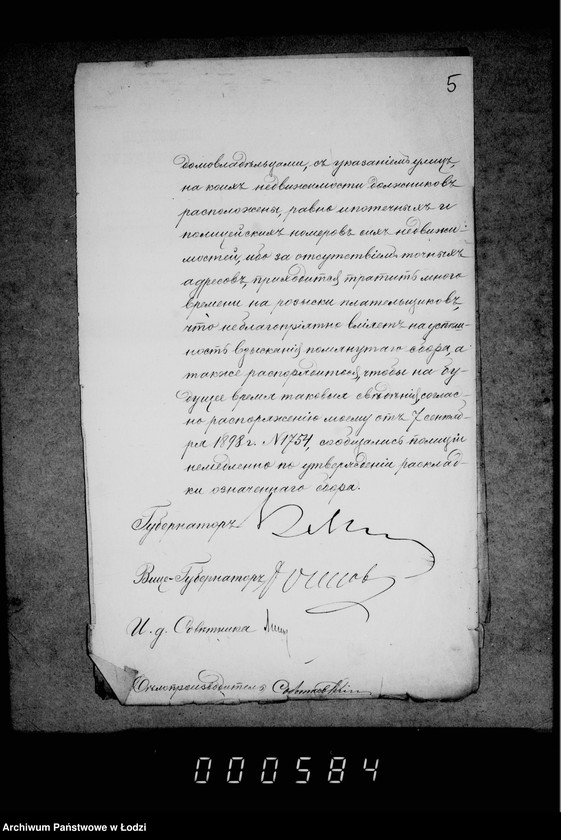 5
домовладѣльцами, съ указаніемъ улицъ,
на коихъ недвижимости должниковъ
расположены, равно ипотечныхъ и
полицейскихъ номеровъ сихъ недвижи-
мостей, ибо за отсутствіемъ точныхъ
адресовъ, приходится тратить много
времени на розыски плательщиковъ,
что неблагопріятно вліяетъ на успѣш-
ность взысканія помянутаго сбора, а
также распорядиться, чтобы на бу-
дущее время таковыя свѣдѣнія, соглас-
но распоряженію моему отъ 7 сентяб-
ря 1898 г. N 1754, сообщались полиціи
немедленно по утвержденіи расклад-
ки означеннаго сбора.
Губернаторъ
Вице-Губернаторъ
И. д. Совѣтника
Дѣлопроизводитель
000584
Archiwum Państwowe w Łodzi